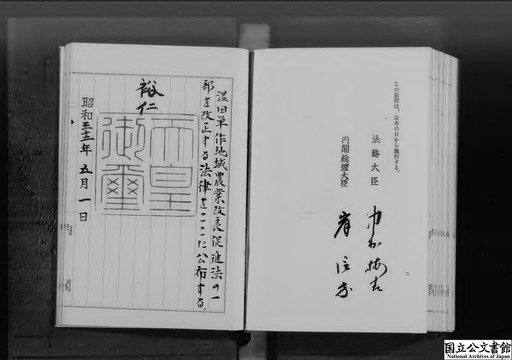 この法律は、公布の日から施行する。
法務大臣
内閣総理大臣
岸信介
二
湿田単作地域農業改良促進法の一
部を改正する法律をここに公布する。
裕仁
天皇
御璽
昭和三十三年五月一日
国立公文書館
National Archives of Japan